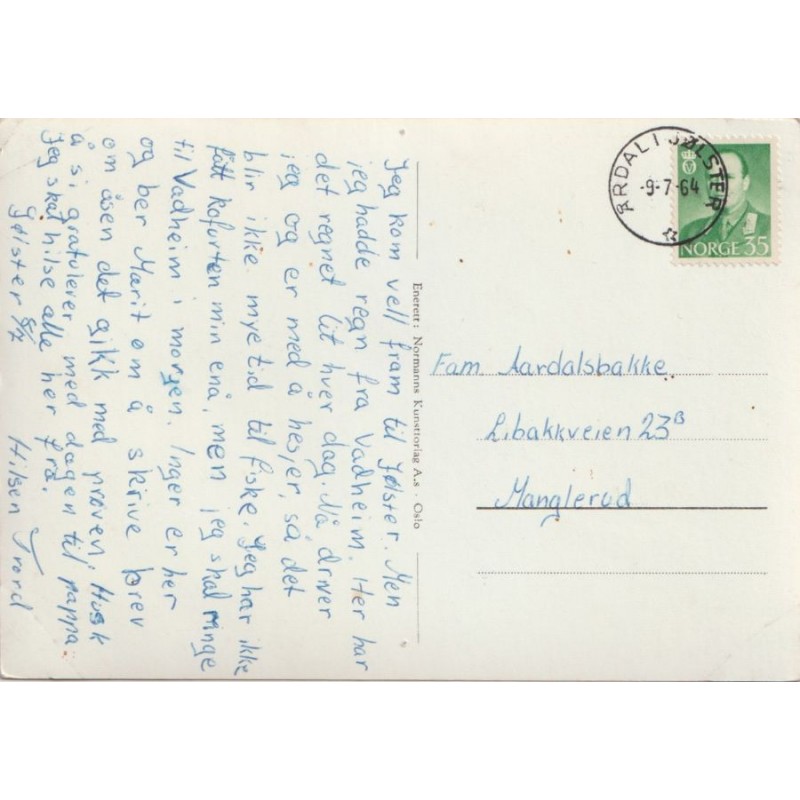 Jeg kom vell fram til Jølster. Men
jeg hadde regn fra Vadheim. Her har
det regnet lit hver dag. Nå driver
jeg og er med å hesjer, så det
blir ikke mye tid til fiske. Jeg har ikke
fått kofurten min enå, men jeg skal ringe
til Vadheim i morgen. Inger er her
og ber Marit om å skrive brev
om åsen det gikk med prøven. Husk
å si gratulerer med dagen til pappa
Jeg skal hilse alle her frå.
Jølster 8/7 Hilsen Trond
Enerett: Normanns Kunstforlag A.s - Oslo
ÅRDAL I JØLSTER
-9-7-64
NORGE 35
Fam. Aardalsbakke
Libakkveien 23B
Manglerud